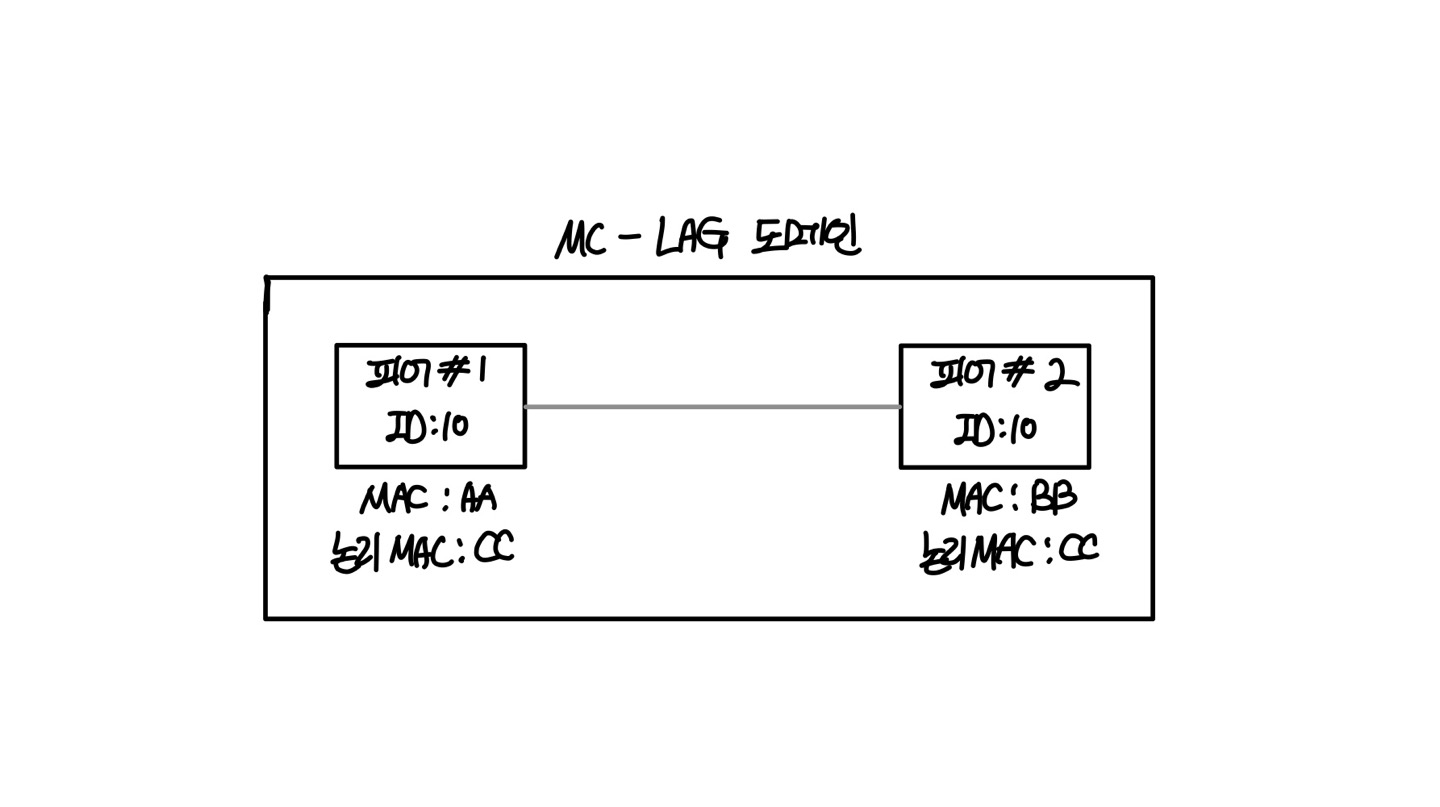 MC - LAG 도메인
피어 #1
ID:10
MAC : AA
논리 MAC : CC
피어 # 2
ID:10
MAC : BB
논리 MAC : CC